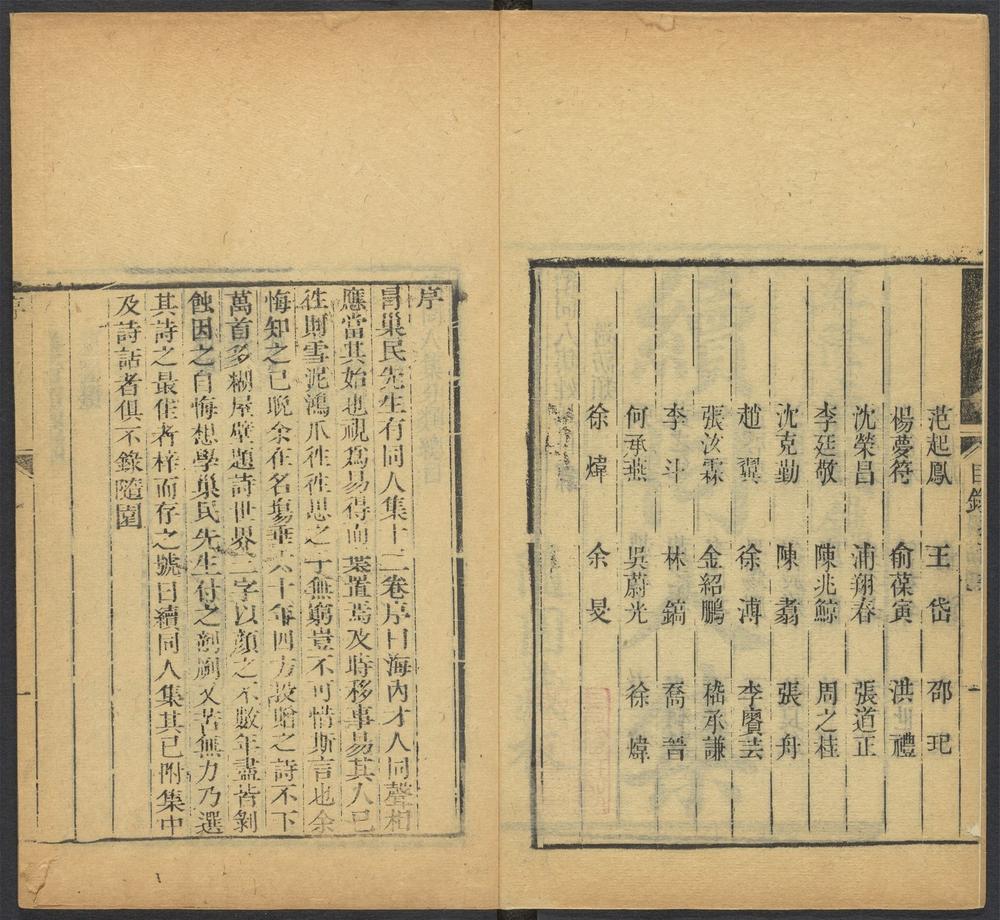 目錄
范起鳳　王岱　邵玘
楊夢符　俞葆寅　洪禮
沈榮昌　浦翔春　張道正
李廷敬　陳兆鯨　周之桂
沈克勤　陳翥　張舟
趙翼　徐溥　李賡芸
張汝霖　金紹鵬　嵇承謙
李斗　林鎬　喬晉
何承燕　吳蔚光　徐煒
徐煒　余旻
序
冒巢民先生有同人集十二卷序曰海內才人同聲相
應當其始也視爲易得而棄置焉及時移事易其人已
徃則雪泥鴻爪徃徃思之于無窮豈不可惜斯言也余
悔知之已晚余在名塲垂六十年四方投贈之詩不下
萬首多糊屋壁題詩世界二字以顏之不數年盡皆剝
蝕因之自悔想學巢民先生付之剞劂又苦無力乃選
其詩之最佳者梓而存之號曰續同人集其已附集中
及詩話者俱不錄隨園
序
一